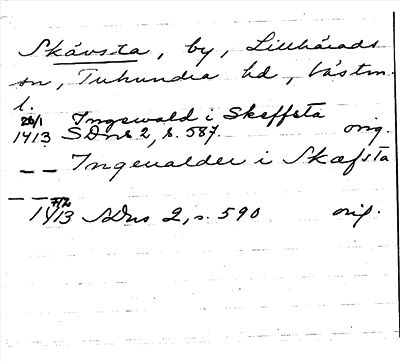 Skävsta, by, Lillhärads
sn, Tuhundra hd, Västm.
l.
Ingewald i Skeffsta
26/1 1413 SDns 2, s. 587. orig.
— — Ingeualder i Skæfsta
— —
7/2 1413 SDns 2, s. 590 orig.